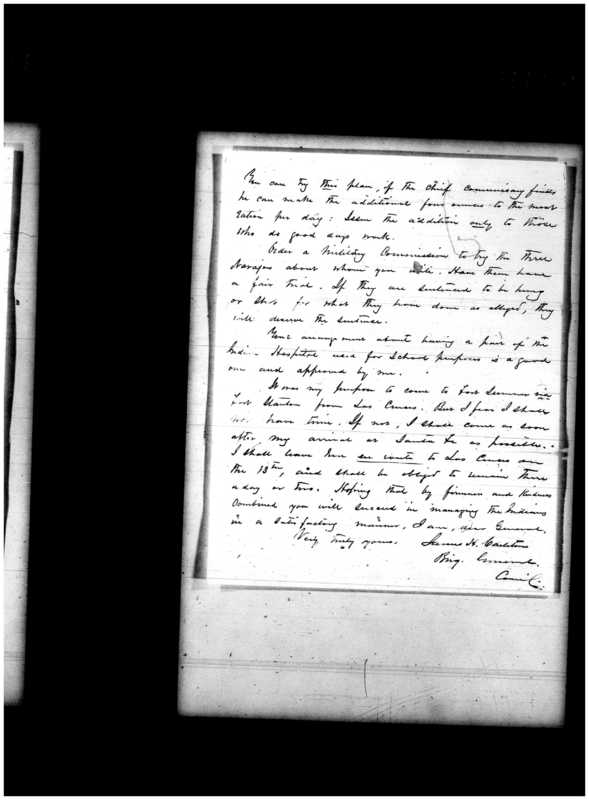 You can try this plan, if the chief commissary finds
he can make the additional four ounces to the meat
ration per day: Issue the addition only to those
who do good days work.
Order a Military Commission to try the three
Navajos about whom you write. Have them have
a fair trial. If they are sentenced to be hung
or shot for what they have done as alleged, they
will deserve the sentence.
Your arrangement about having a part of the
Indn Hospital used for School purposes is a good
one and approved by me.
It was my purpose to come to Fort Sumner via
Fort Stanton from Las Cruces. But I fear I shall
not have time. If not, I shall come as soon
after my arrival at Santa Fe as possible.
I shall leave here en route to Las Cruces on
the 13th, and shall be obliged to remain there
a day or two. Hoping that by firmness and kindness
combined you will succeed in managing the Indians
in a satisfactory manner, I am, dear General,
Very truly yours. James H. Carleton
Brig. General,
Comd'g.